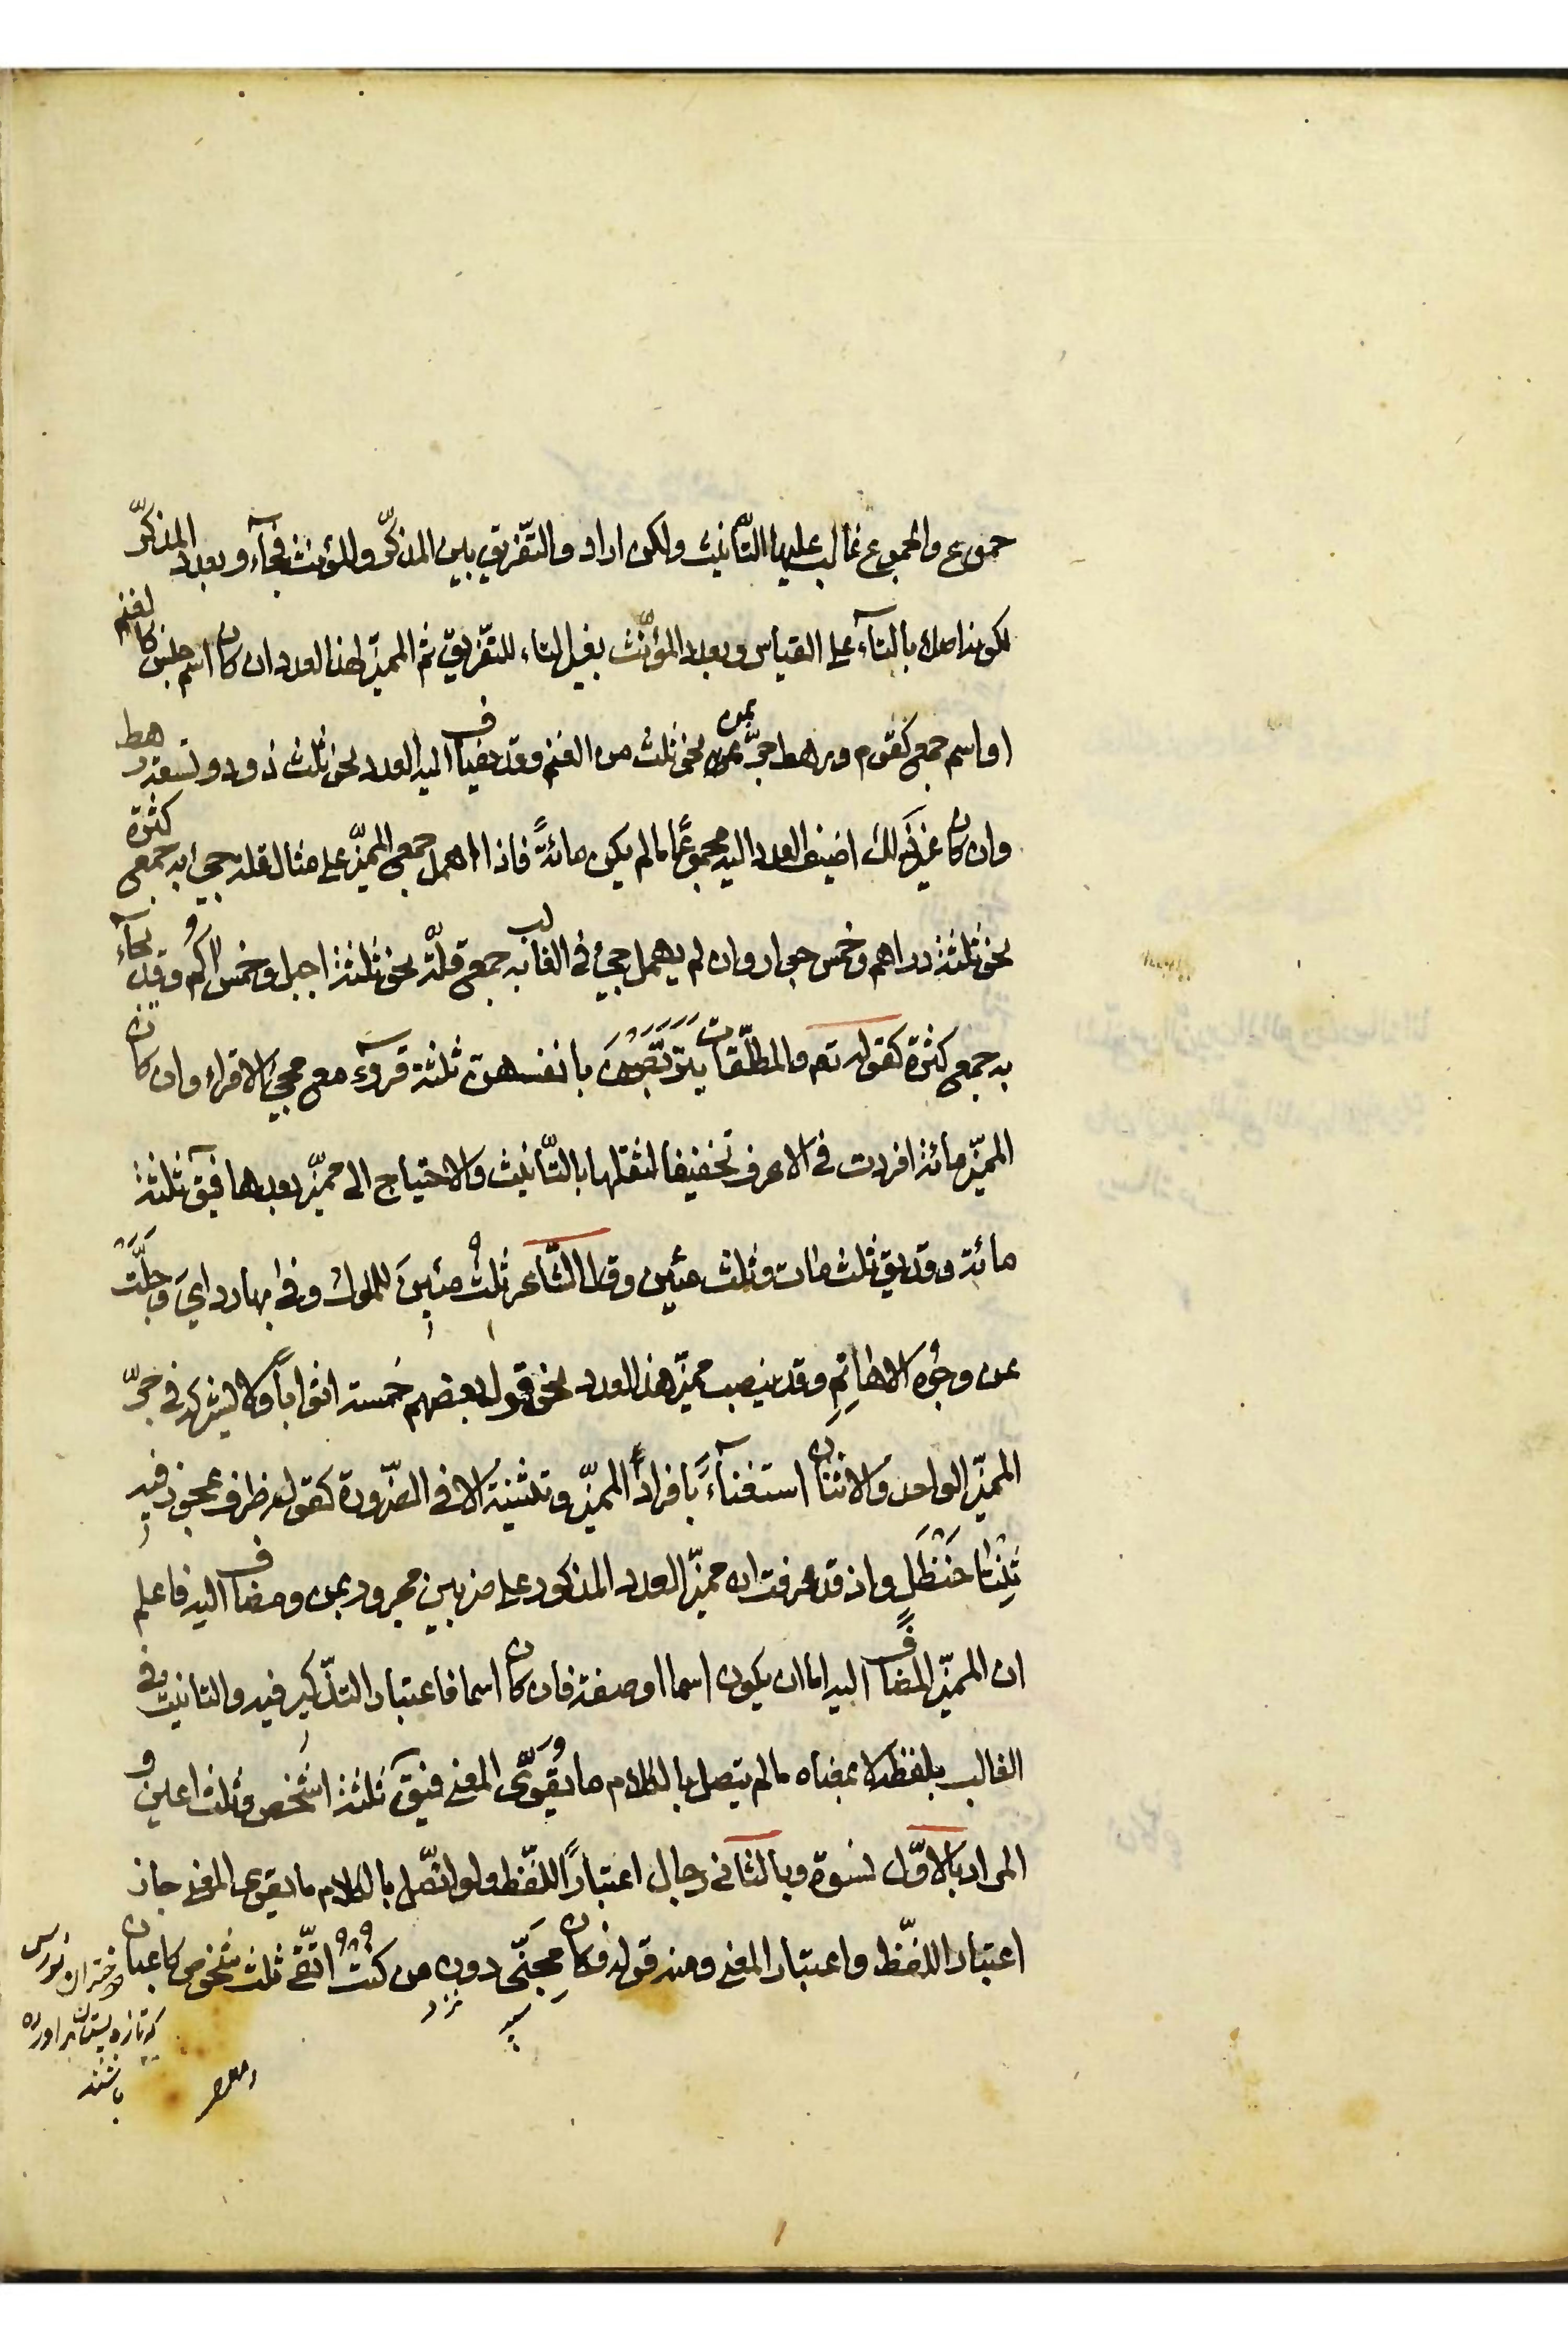 جموع والجموع غالب عليها التّأنيث ولكن ارادوا التّفريق بين المذكّر والمؤنث فجآؤ بعدد المذكّر
لكونه اصلا بالتآء على القياس وبعدد المؤنّث بغير التاء للتّفريق ثم المميّز لهذا العدد ان كان اسم جنس كالغنم
او اسم جمع كقوم ورهط جرّ بمن نحو ثلث من الغنم وقد يضاف اليه العدد نحو ثلث ذود وتسعة رهط
وان كان غير ذلك اضيف العدد اليه مجموعًا مالم يكن مائةً فاذا اهمل جمع المميّز على مثال قلة جيئ به جمع كثرة
نحو ثلثة دراهم وخمس جوار وان لم يهمل جيئ في الغالب به جمع قلّة نحو ثلثة اجبل وخمس اكم وقد يجآء
به جمع كثرة كقوله تعم والمطلّقات يتربّصن بانفسهن ثلثة قروء مع مجيئ الاقراء وان كان
المميّز مائة افردت في الاعرف تخفيفا لثقلها بالتّأنيث والاحتياج الى مميّز بعدها فيق ثلثة
مائة وقد يق ثلث مات وثلث مئين وقال الشّاعر ثلث مئين للملوك وفى بها ردائي وجلّت
عن وجوه الاهاتم وقد ينصب مميّز هذا العدد نحو قول بعضهم خمسة اثوابا ولا يشركه في جرّ
المميّز الواحد والاثنان استغنآءً بافراد المميّز وتثنية الا في الضّرورة كقوله ظرف عجوز فيه
ثنتا حنظل واذ قد عرفت ان مميّز العدد المذكور على ضربين مجرور بمن ومضاف اليه فاعلم
ان المميّز المضاف اليه اما ان يكون اسما او صفة فان كان اسما فاعتبار التذكير فيه والتانيث في
الغالب بلفظه لا بمعناه مالم يتصل بالكلام ما يقوّى المعنى فيق ثلثة اشخص وثلث اعين و
المراد بالاوّل نسوة وبالثاني رجال اعتبارًا للفّظ ولو اتّصل بالكلام ما يقوى المعنى جاز
اعتبار اللفّظ واعتبار المعنى ومنه قوله فكان مجنّى دون من كنت اتّقى ثلث شخوص كاعبان
سپر
نزد
دختران نورس
كه تازه پستان براورده
باشند
ومعصر